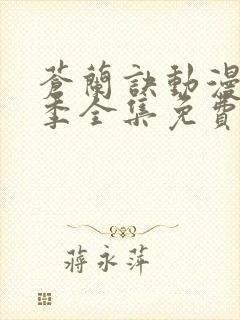 蒼蘭訣動漫
季全集免費
蔣永萍